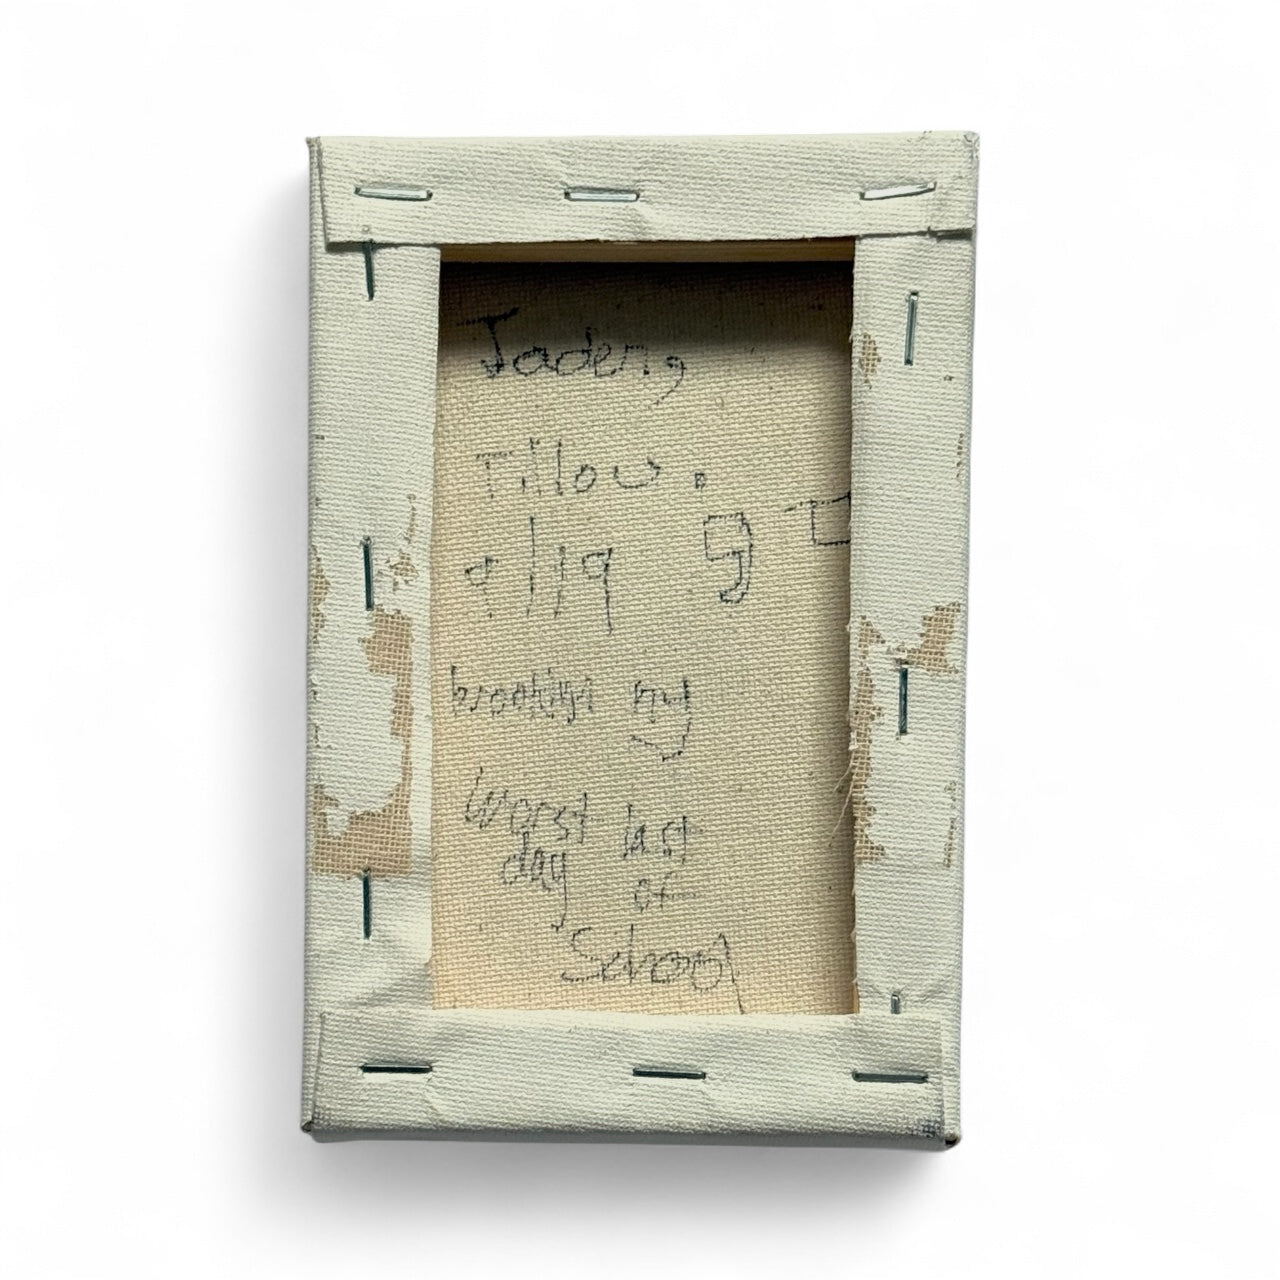 Jaden,
Tillou.
9
brooklyn ny
worst last
day of
School